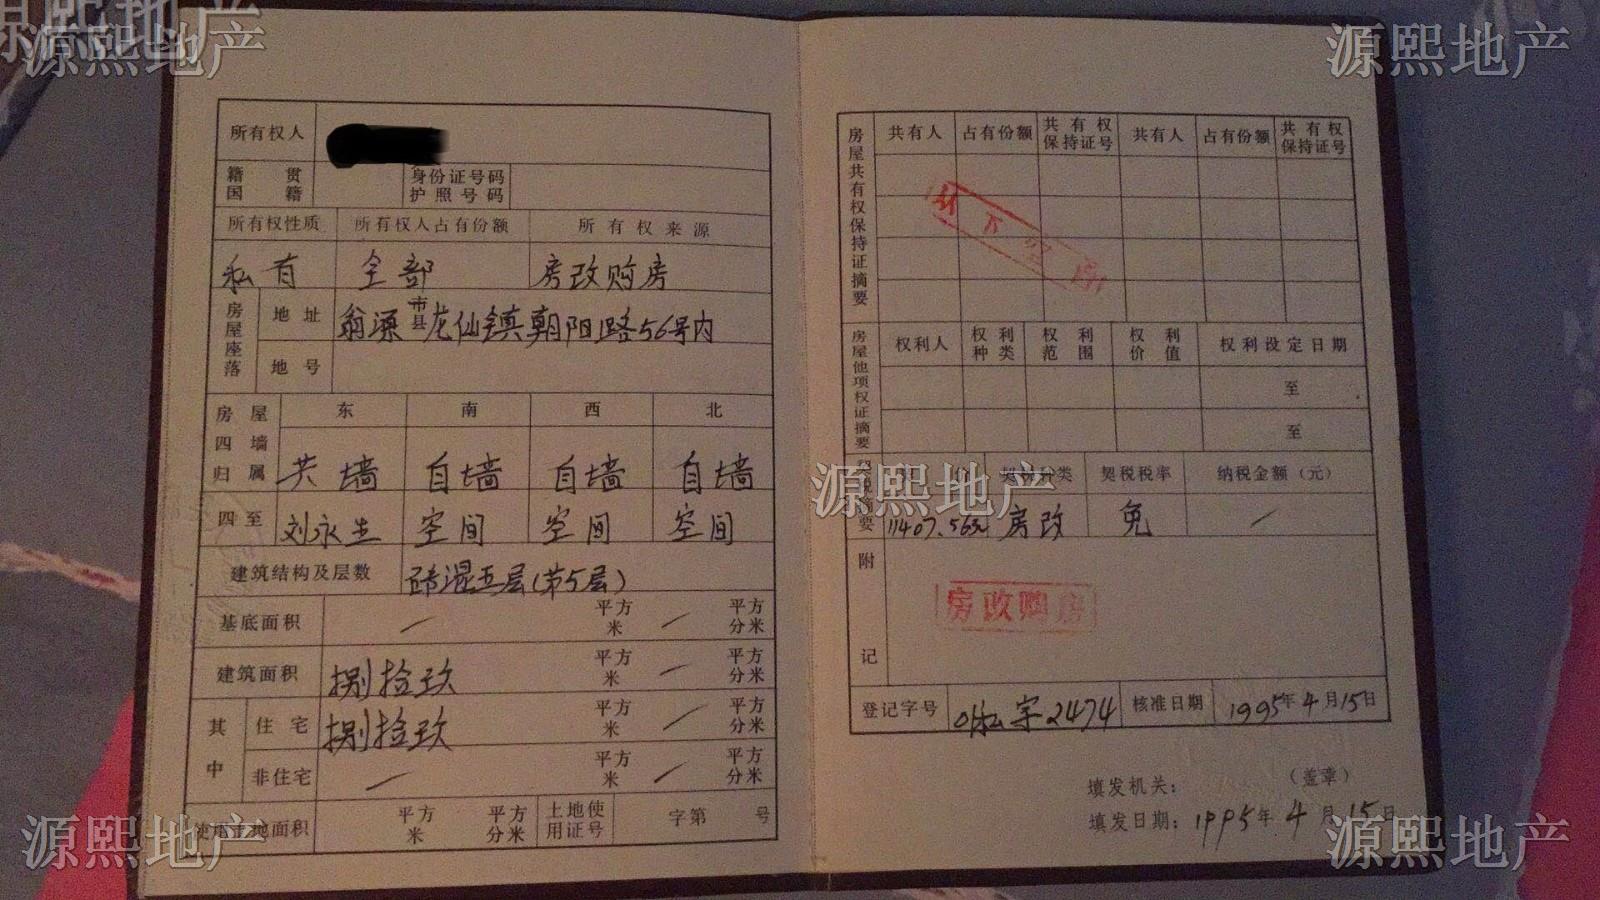 源熙地产
源熙地产
源熙地产
所有权人
籍贯
国籍
身份证号码
护照号码
所有权性质 所有权人占有份额 所有权来源
私有 全部 房改购房
房屋座落 地址 翁源 市县 龙仙镇朝阳1路56号内
地号
房屋四墙归属 东 南 西 北
共墙 自墙 自墙 自墙
四至 刘永生 空间 空间 空间
建筑结构及层数 砖混五层(第5层)
基底面积 / 平方米 / 平方分米
建筑面积 捌拾玖 平方米 / 平方分米
其中 住宅 捌拾玖 平方米 / 平方分米
非住宅 / 平方米 / 平方分米
使用土地面积 平方米 平方分米 土地使用证号 字第 号
房屋共有权保持证摘要 共有人 占有份额 共有权保持证号 共有人 占有份额 共有权保持证号
以下空
房屋他项权证摘要 权利人 权利种类 权利范围 权利价值 权利设定日期
至
至
价 契税种类 契税税率 纳税金额(元)
源熙地产
要 11407.56元 房改 免 /
附记
房改购房
登记字号 字2474 核准日期 1995年4月15日
填发机关: (盖章)
填发日期: 1995年4月15日
源熙地产
源熙地产